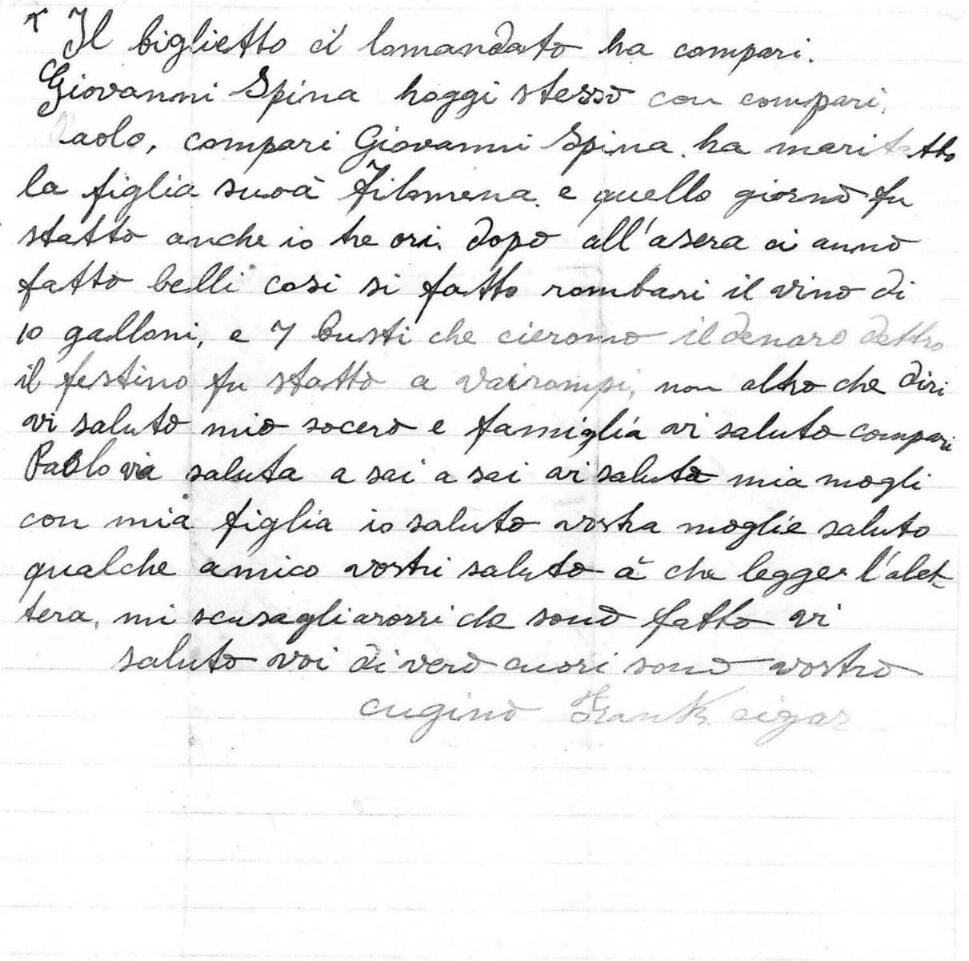 Il biglietto ci lomandato ha compari.
Giovanni Spina hoggi stesso con compari,
Paolo, compari Giovanni Spina. ha maritatto
la figlia suoà Filomena. e quello giorno fu
statto anche io tre ori. dopo all'asera ci anno
fatto belli cosi si fatto rombari il vino di
10 galloni, e 7 busti che cieromo il denaro dettro
il festino fu statto a vairompi, non altro che diri
vi saluto mio socero e famiglia vi saluto compari
Paolo via saluta a sai a sai vi saluta mia mogli
con mia figlia io saluto vostra moglie saluto
qualche amico vostri saluto à che legger l'alet
tera. mi scusagliarorri che sono fatto vi
saluto voi di vero cuori sono vostro
cugino Frank cigar